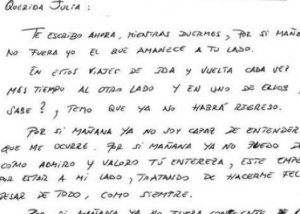 QUERIDA JULIA:
TE ESCRIBO AHORA, MIENTRAS DUERMES, POR SI MAÑANA
NO FUERA YO EL QUE AMANECE A TU LADO.
EN ESTOS VIAJES DE IDA Y VUELTA CADA VEZ
MÁS TIEMPO AL OTRO LADO Y EN UNO DE ELLOS,
SABE?, TEMO QUE YA NO HABRÁ REGRESO.
POR SI MAÑANA YA NO SOY CAPAZ DE ENTENDER
QUE ME OCURRE. POR SI MAÑANA YA NO PUEDO
CÓMO ADMIRO Y VALORO TU ENTEREZA, ESTE EMPE
POR ESTAR A MI LADO, TRATANDO DE HACERME FEL
PESAR DE TODO, COMO SIEMPRE.
POR SI MAÑANA YA NO FUERA CONSCIENTE DE